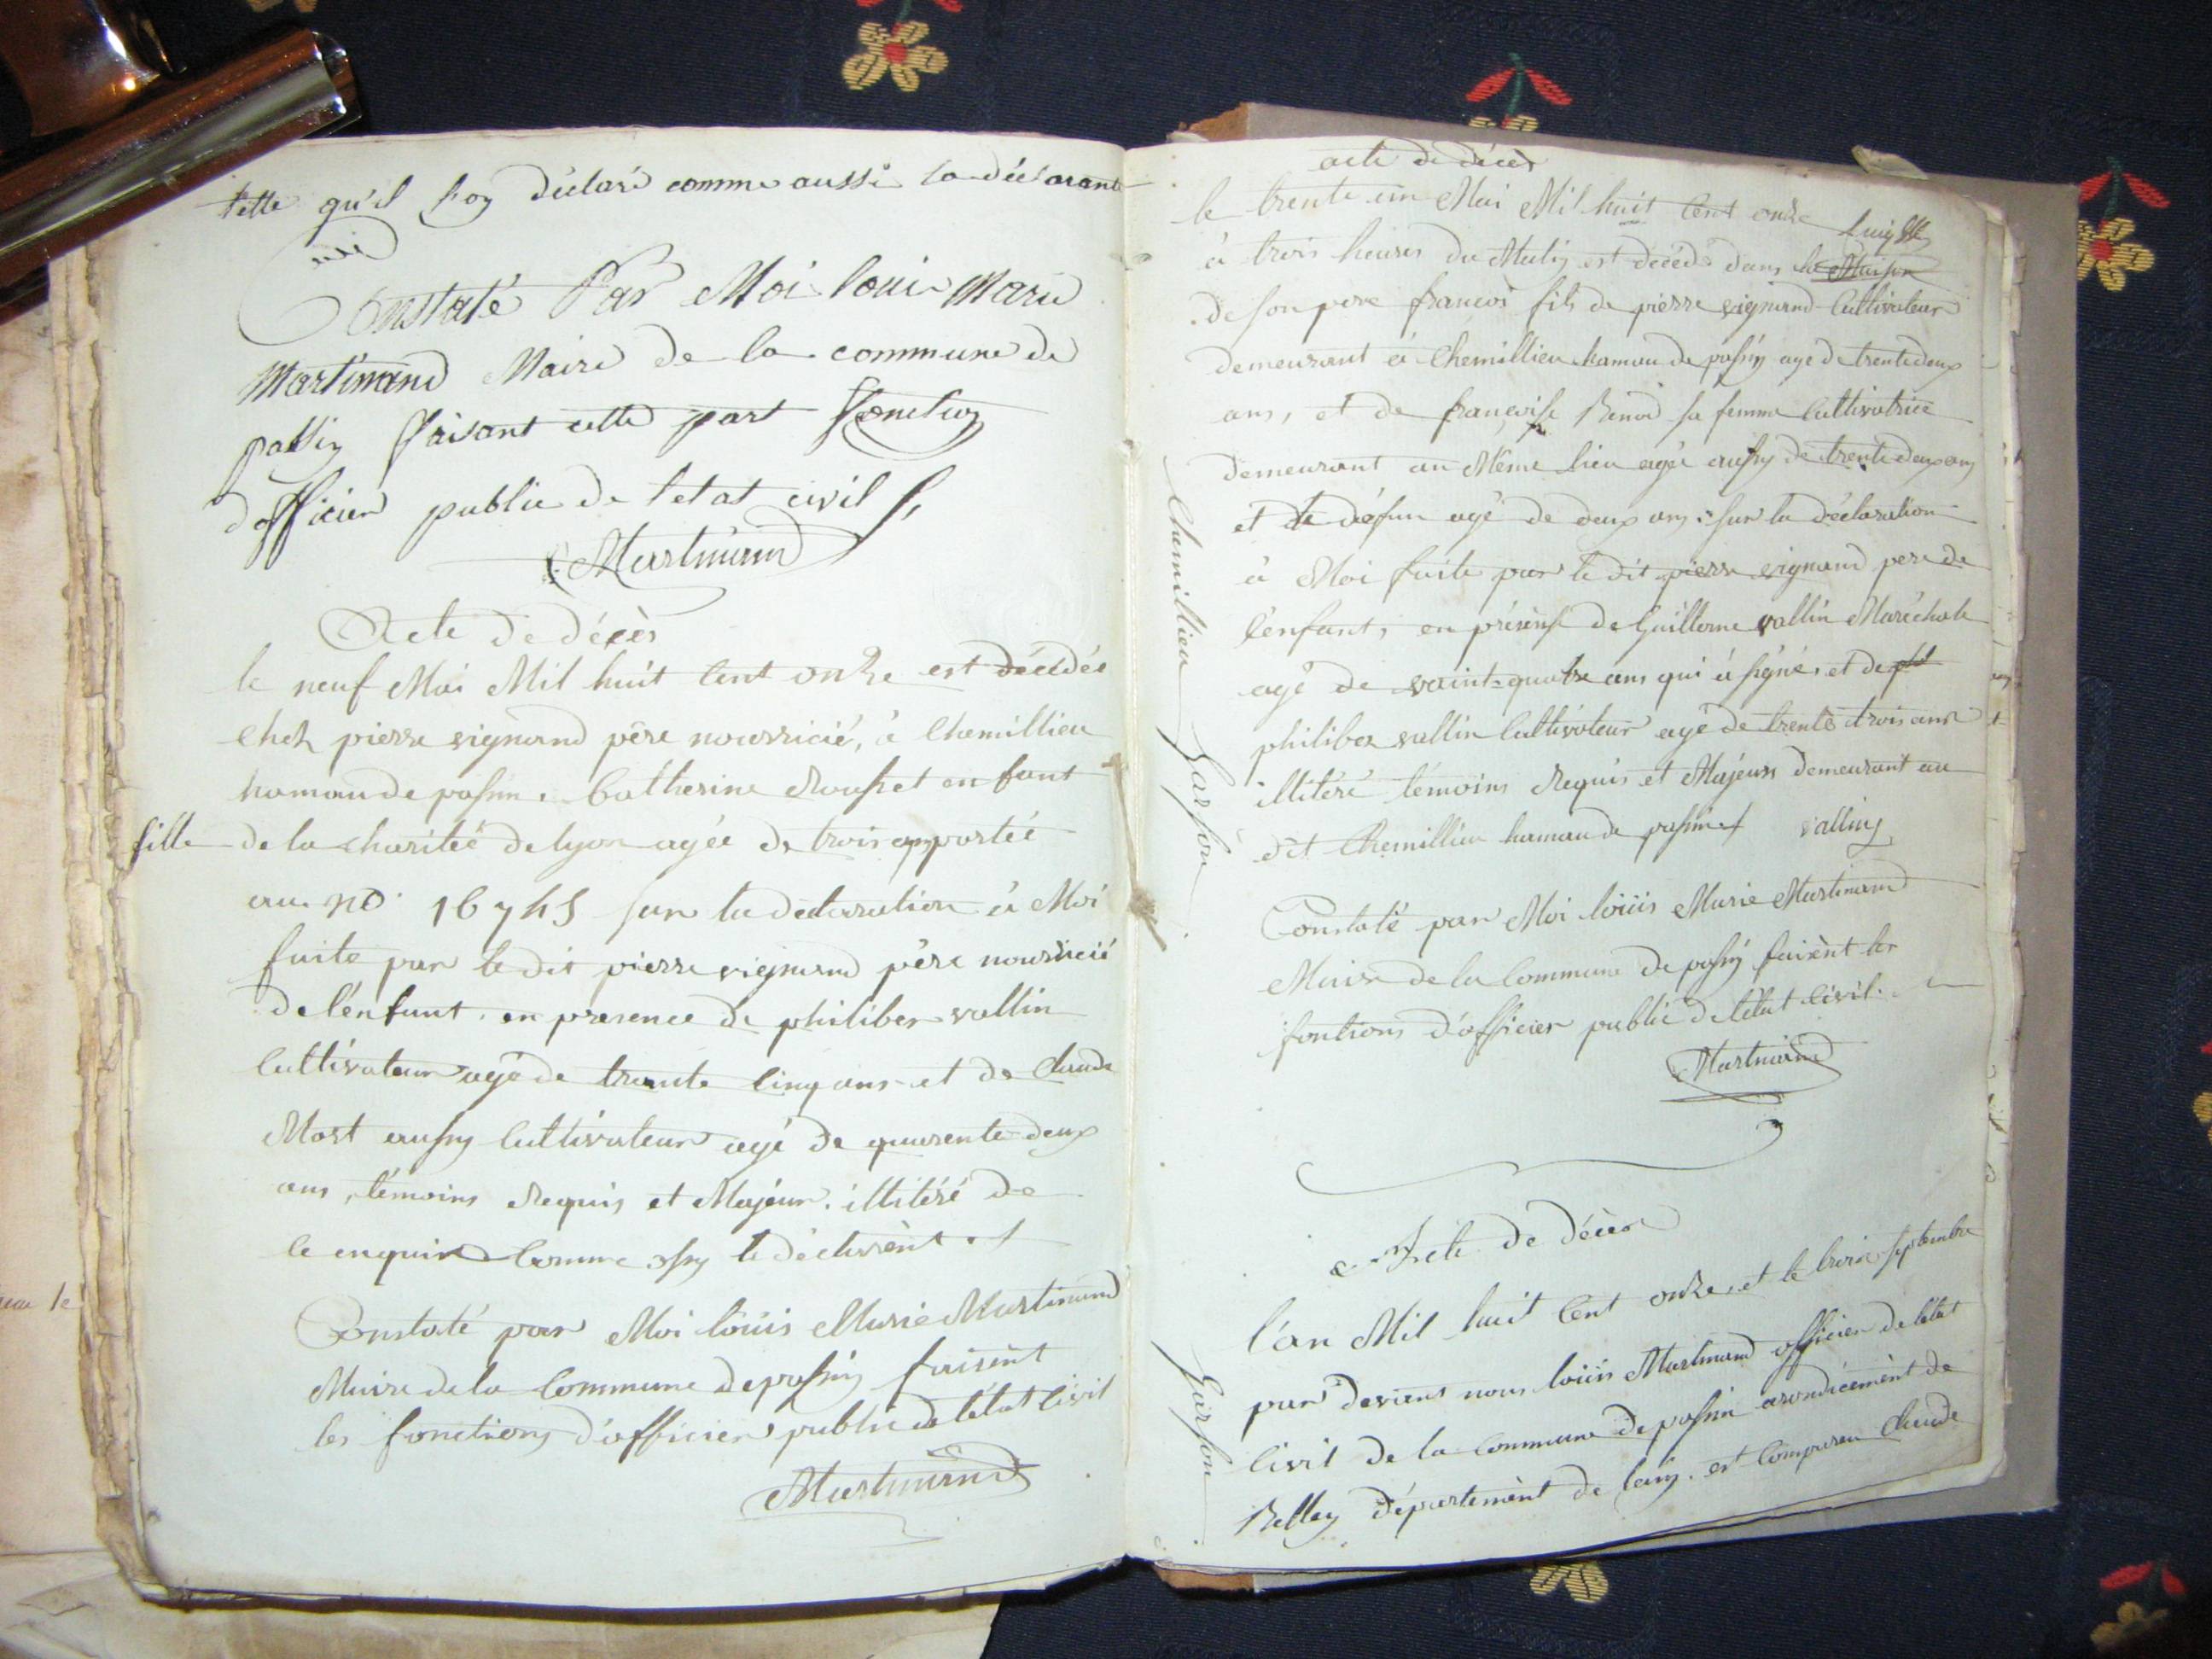 telle qu'il soy déclaré comme aussi la déclarante
Constaté Par Moi louis Marie
Martinand Maire de la commune de
passin faisant cette part fonction
d'officier public de l'etat civil
Martinand
Acte de décès
le neuf Mai Mil huit Cent onze est décédée
chez pierre vignand père nourricié, à Chemillieu
hamau de passin. Catherine Rousset enfant
fille de la charitée de lyon agée de trois ans portée
au no. 16745 sur la déclaration à Moi
faite par le dit pierre vignand père nourricié
de l'enfant. en presence de philiber vallin
Cultivateur agé de trante Cinq ans et de Claude
Most aussy Cultivateur agé de quarente deux
ans, témoins Requis et Majeur. illitéré de
ce enquis Comme le déclarènt.
Constaté par Moi loüis Marie Martinand
Maire de la Commune de passin faisènt
les fonctions d'officier public de l'état civil
Martinand
acte de décès
le trente un Mai Mil huit Cent onze
à trois heures du Matin est décédé dans la Maison
de son pere francoi fils de pierre vignand Cultivateur
demeurant à Chemillieu hamau de passin agé de trente deux
ans, et de françoise Benoid sa femme Cultivatrice
demeurant au Même lieu agée aussy de trente deux ans
et le défun agé de deux ans. sur la déclaration
à Moi faite par le dit pierre vignand pere de
l'enfant, en présense de Guillerme vallin Maréchale
agé de vaint-quatre ans qui à signé. et de
philiber vallin Cultivateur agé de trente trois ans
illitéré témoins Requis et Majeurs demeurant au
dit Chemillieu hamau de passin vallin
Chemillieu Garson
Constaté par Moi loüis Marie Martinand
Maire de la Commune de passin faisènt les
fontions d'officier public de l'état civil.
Martinand
Acte de décès
l'an Mil huit Cent onze. et le trois septembre
par devant nous loüis Martinand officier de l'état
Civil de la Commune de passin arondicemènt de
Belley département de lain. est Comparau Claude
Garson